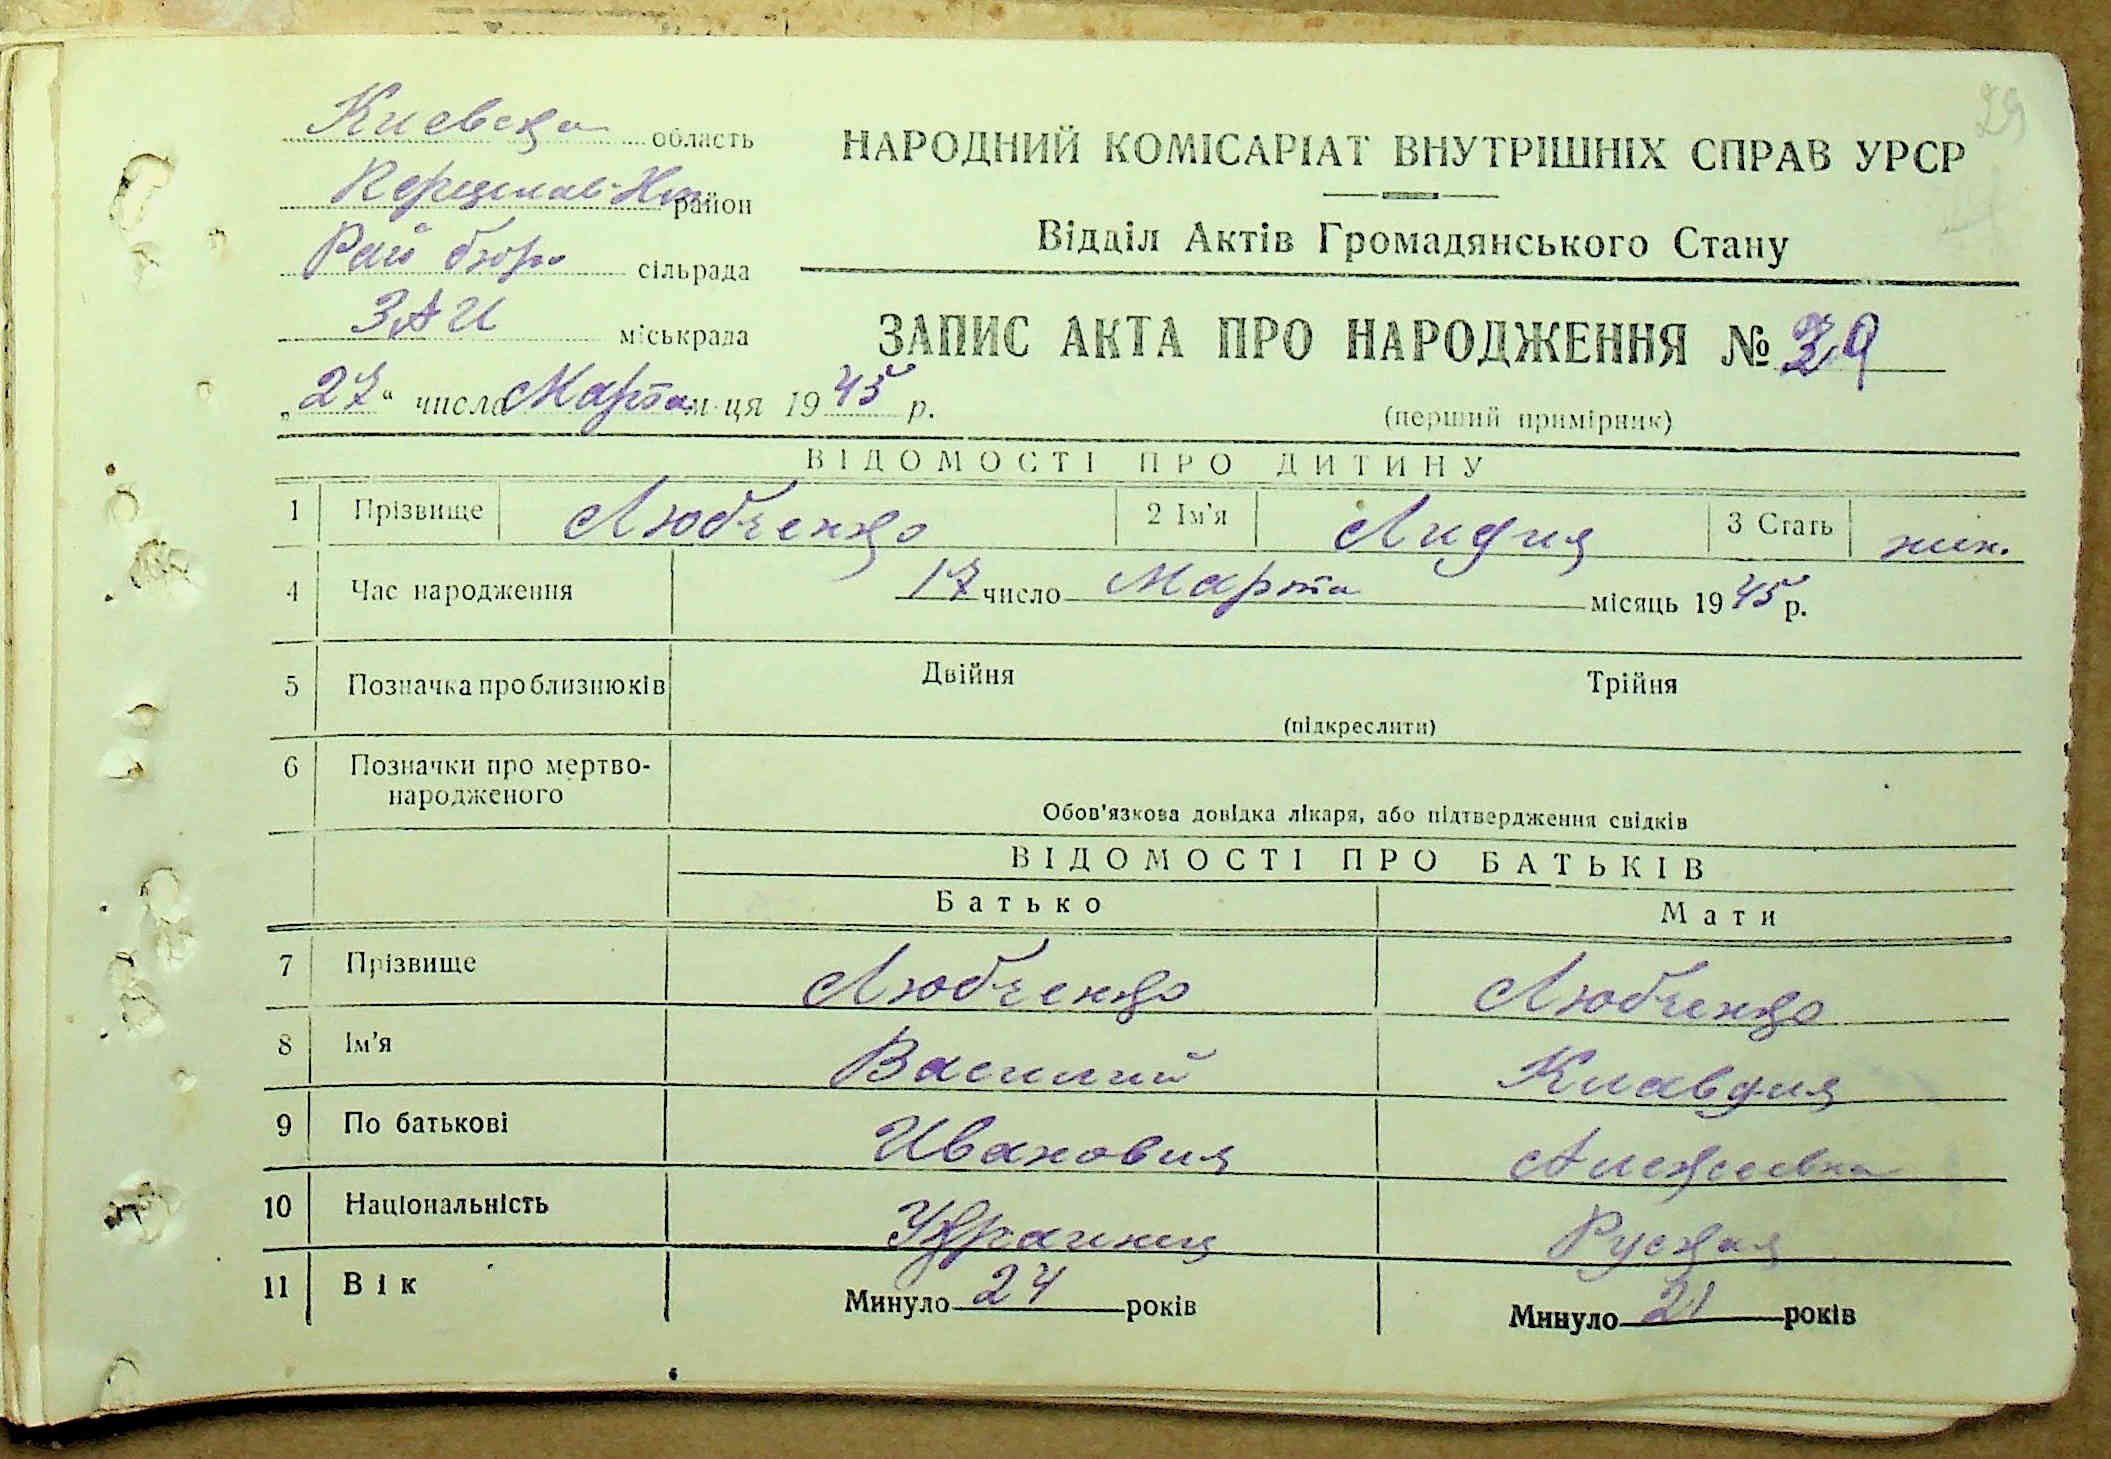 29
Киевска область
Переяслав-Хм. район
Рай бюро сільрада
ЗАГС міськрада
„27“ числа Марта м-ця 1945 р.
НАРОДНИЙ КОМІСАРІАТ ВНУТРІШНІХ СПРАВ УРСР
Відділ Актів Громадянського Стану
ЗАПИС АКТА ПРО НАРОДЖЕННЯ № 29
(перший примірник)
ВІДОМОСТІ ПРО ДИТИНУ
1 Прізвище Любченко 2 Ім'я Лидия 3 Стать жин.
4 Час народження 17 число Марта місяць 1945 р.
5 Позначка про близнюків Двійня Трійня
(підкреслити)
6 Позначки про мертво-
народженого
Обов'язкова довідка лікаря, або підтвердження свідків
ВІДОМОСТІ ПРО БАТЬКІВ
Батько Мати
7 Прізвище Любченко Любченко
8 Ім'я Василий Клавдия
9 По батькові Иванович Алексеевна
10 Національність Украинец Руская
11 Вік Минуло 24 років Минуло 21 років